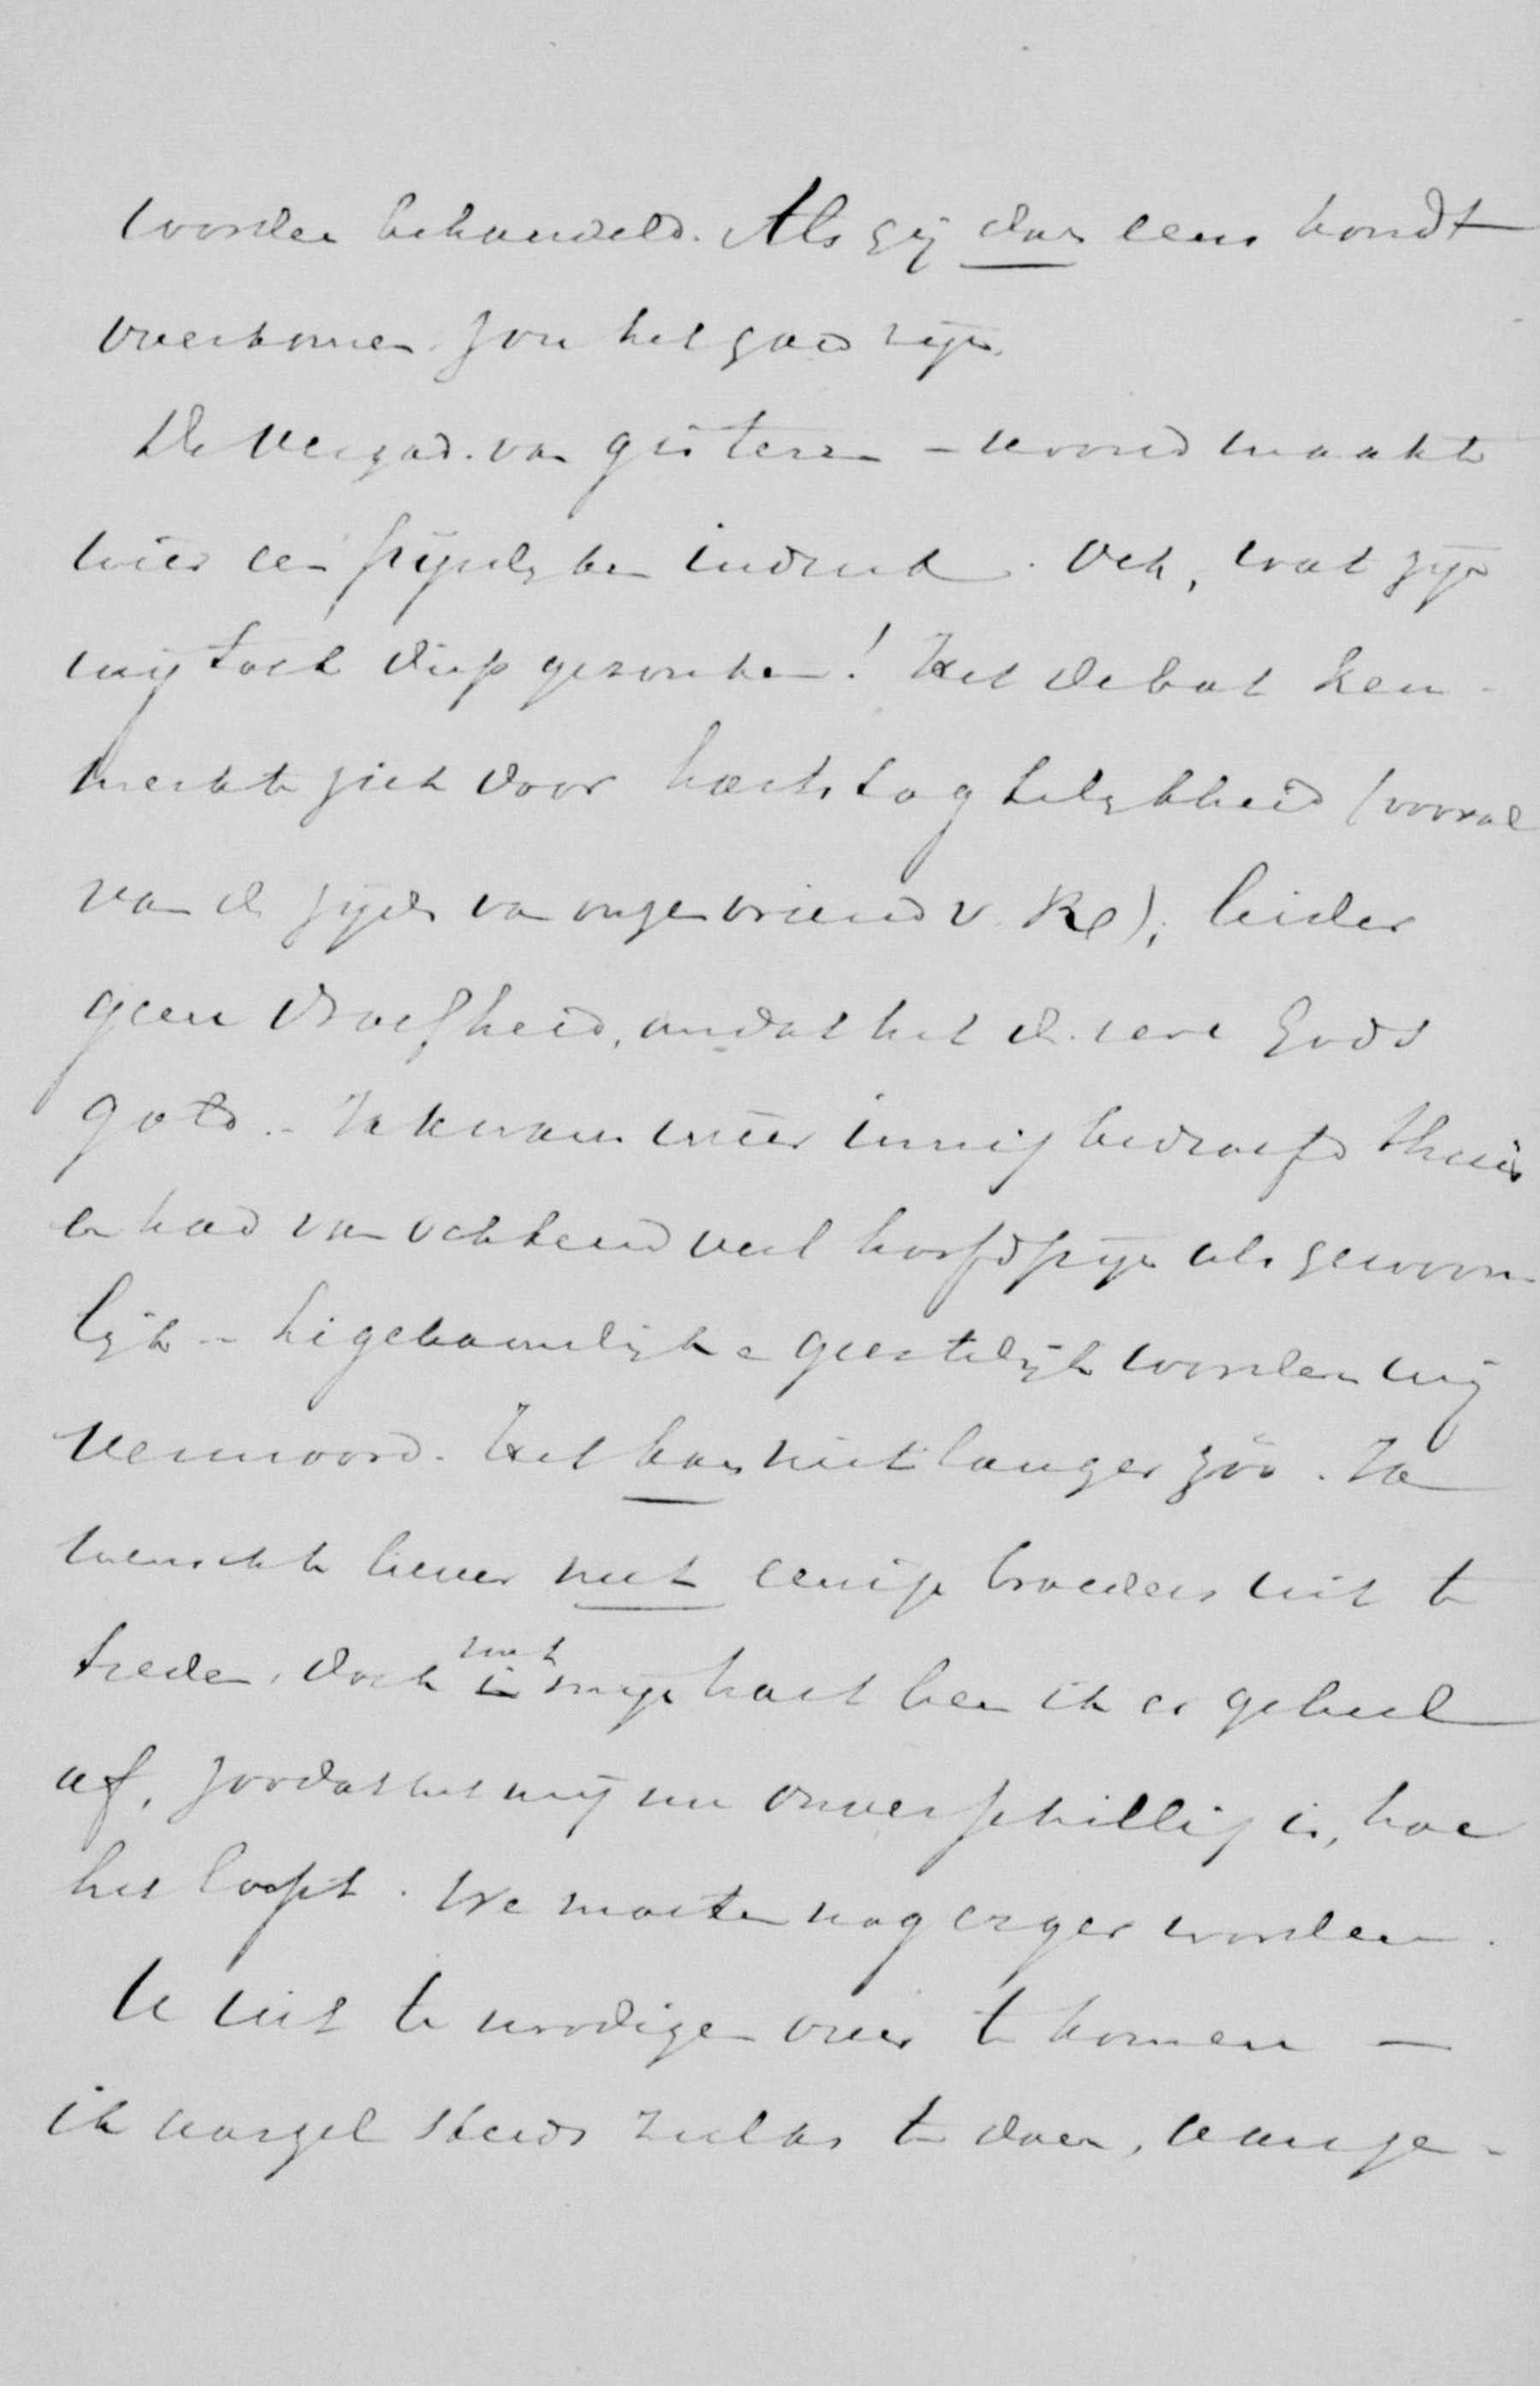 worden behandeld. Als gij dan eens kondt
overkomen zou het goed zijn.
De Vergad. van gisteren-avond maakte
weer een pijnlyken indruk. Och, wat zijn
wij toch diep gezonken! Het debat ken-
merkte zich door hartstogtelykheid (vooral
van de zijde van onzen vriend v. R.), leider
geen droefheid, omdat het de eere Gods
gold. - Ik kwam weer innig bedroefd thuis
en had van ochtend veel hoofdpijn als gewoon-
lijk - ligchaamlijk en geestelijk worden wij
vermoord. Het kan niet langer zóó. Ik
wenschte liever met eenige broeders uit te
treden, doch met in mijn hart ben ik er geheel
af, zoodat het mij nu onverschillig is, hoe
het loopt. We moeten nog erger worden.
U uit te noodigen over te komen -
ik aarzel steeds zulks te doen, aange-